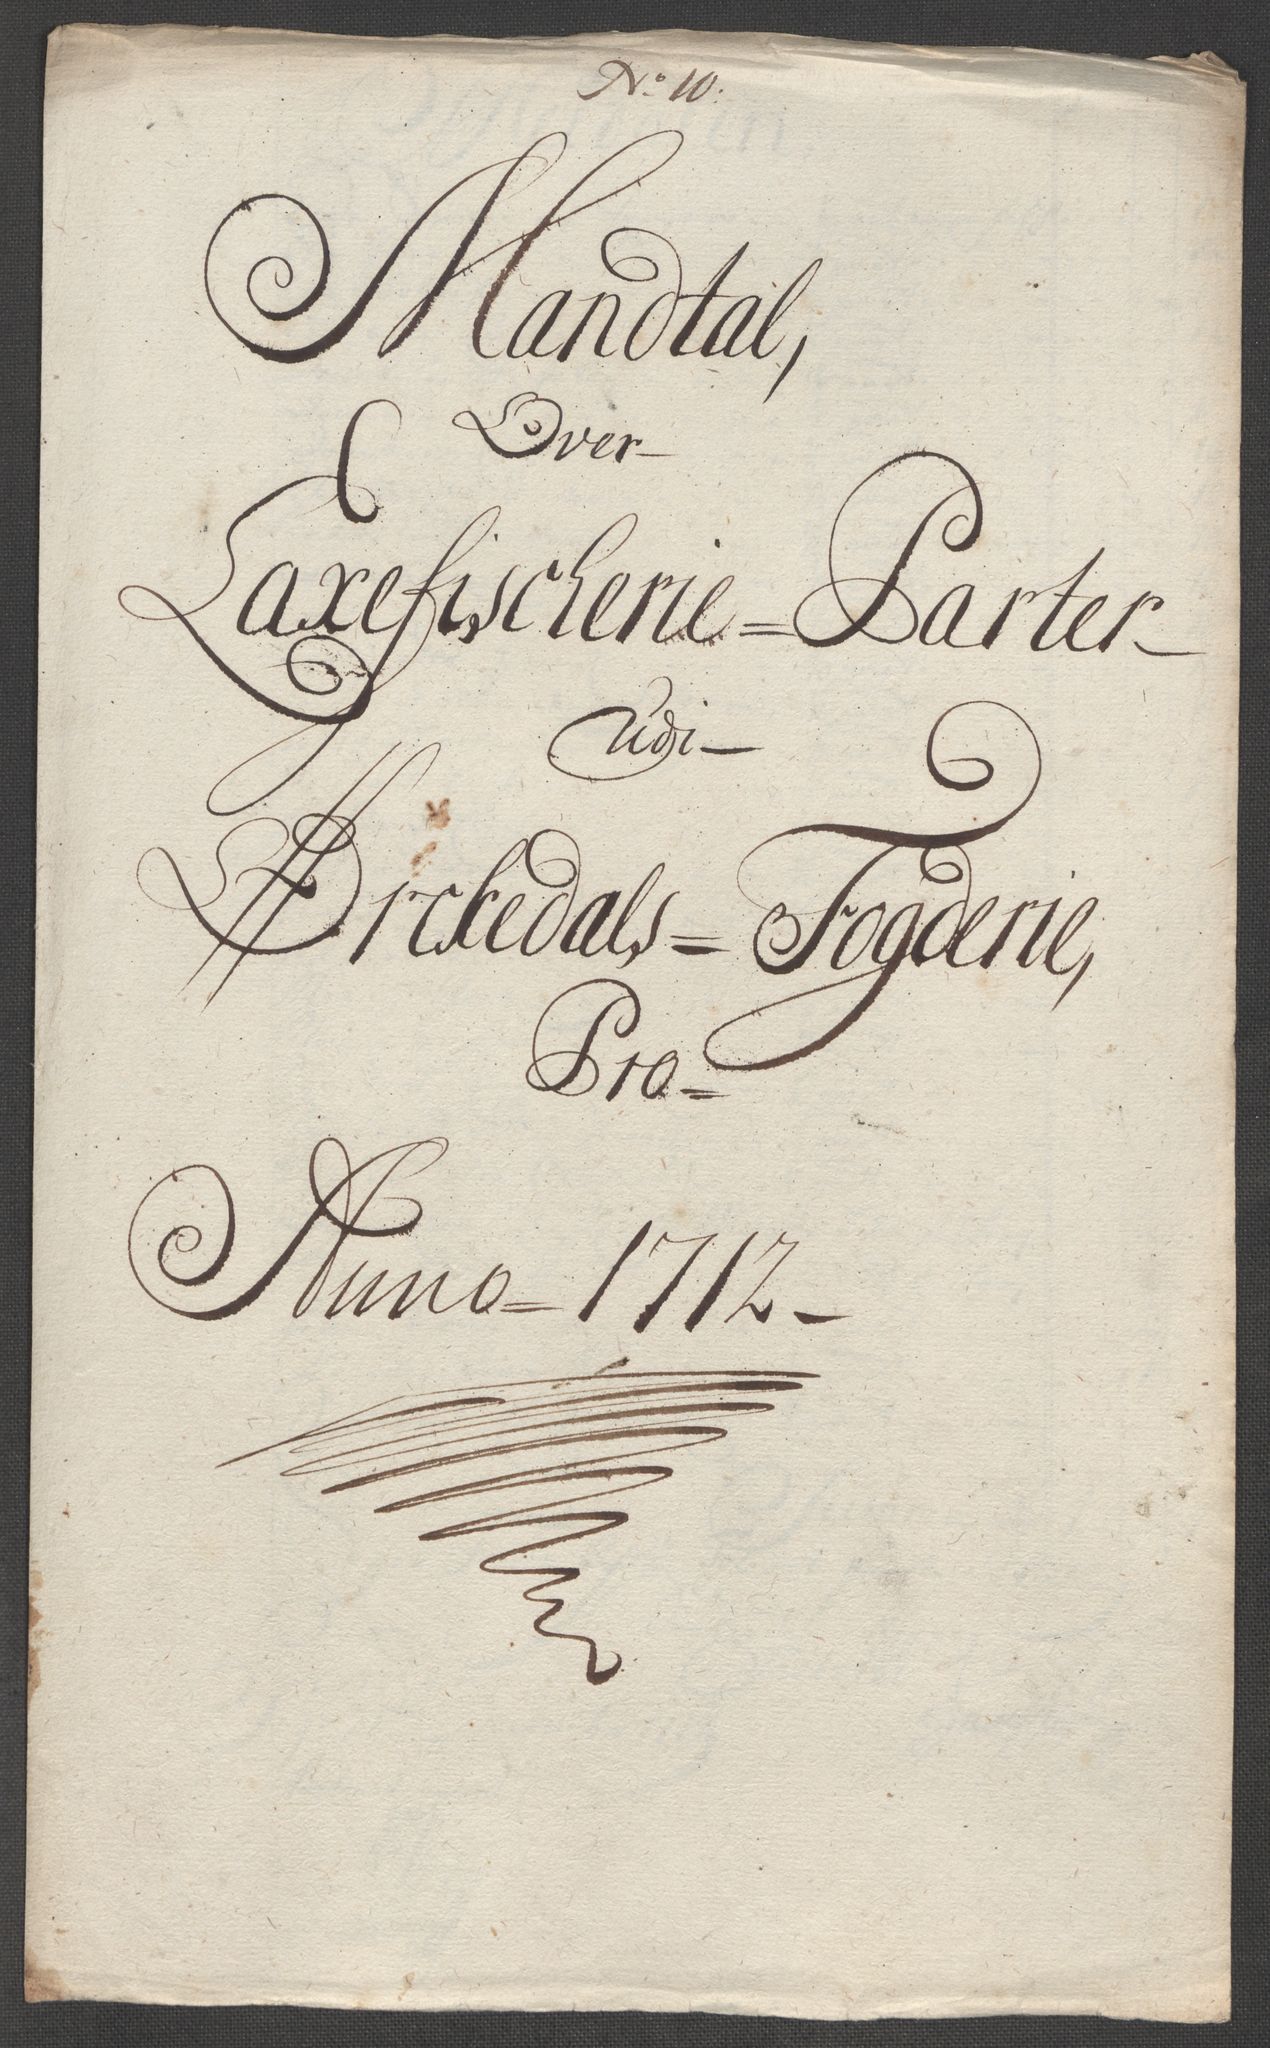 No 10.
Mandtal,
Over
Laxefischerie = Parter
Udi
Ørckedals = Fogderie,
Pro =
Anno = 1712